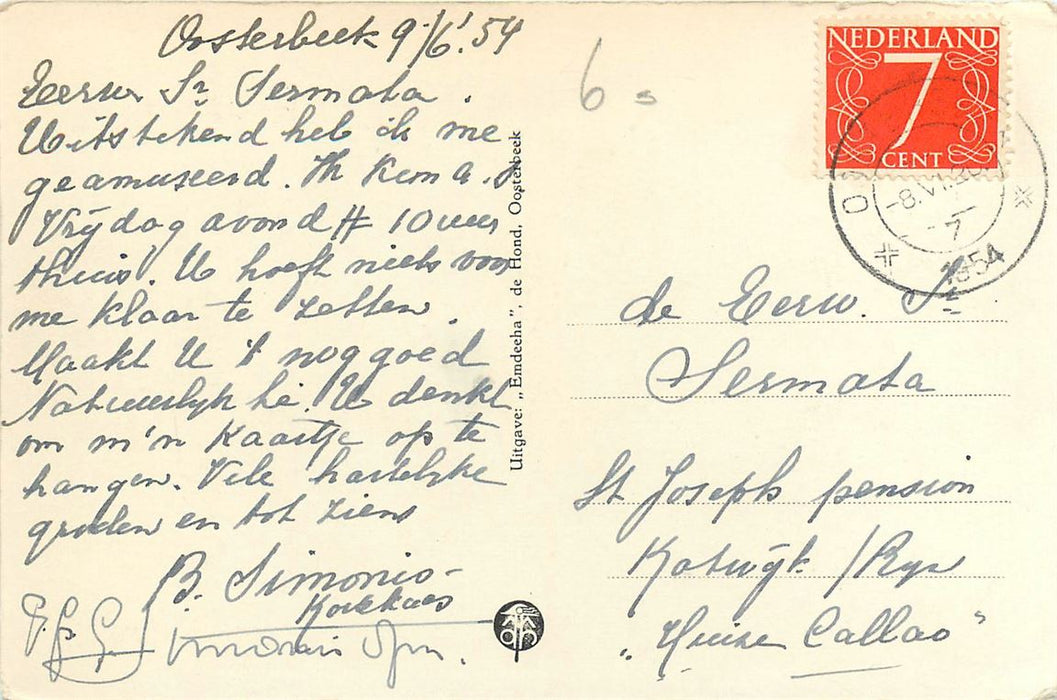 Oosterbeek 9/6'.54
Eerw Sr Sermata.
Uitstekend heb ik me
geamuseerd. Ik kom a.s
Vrijdag avond ± 10 uur
thuis. U hoeft niets voor
me klaar te zetten.
Maakt U 't nog goed
Natuurlijk hè. U denkt
om m'n kaartje op te
hangen. Vele hartelijke
groeten en tot ziens
B. Simonis-
Uitgave: „Emdeeha", de Hond, Oosterbeek
6
NEDERLAND
7
CENT
-8.VI.
7
1954
de Eerw. Sr
Sermata
St Joseph pension
Katwijk /Rijn
„Huize Callao"